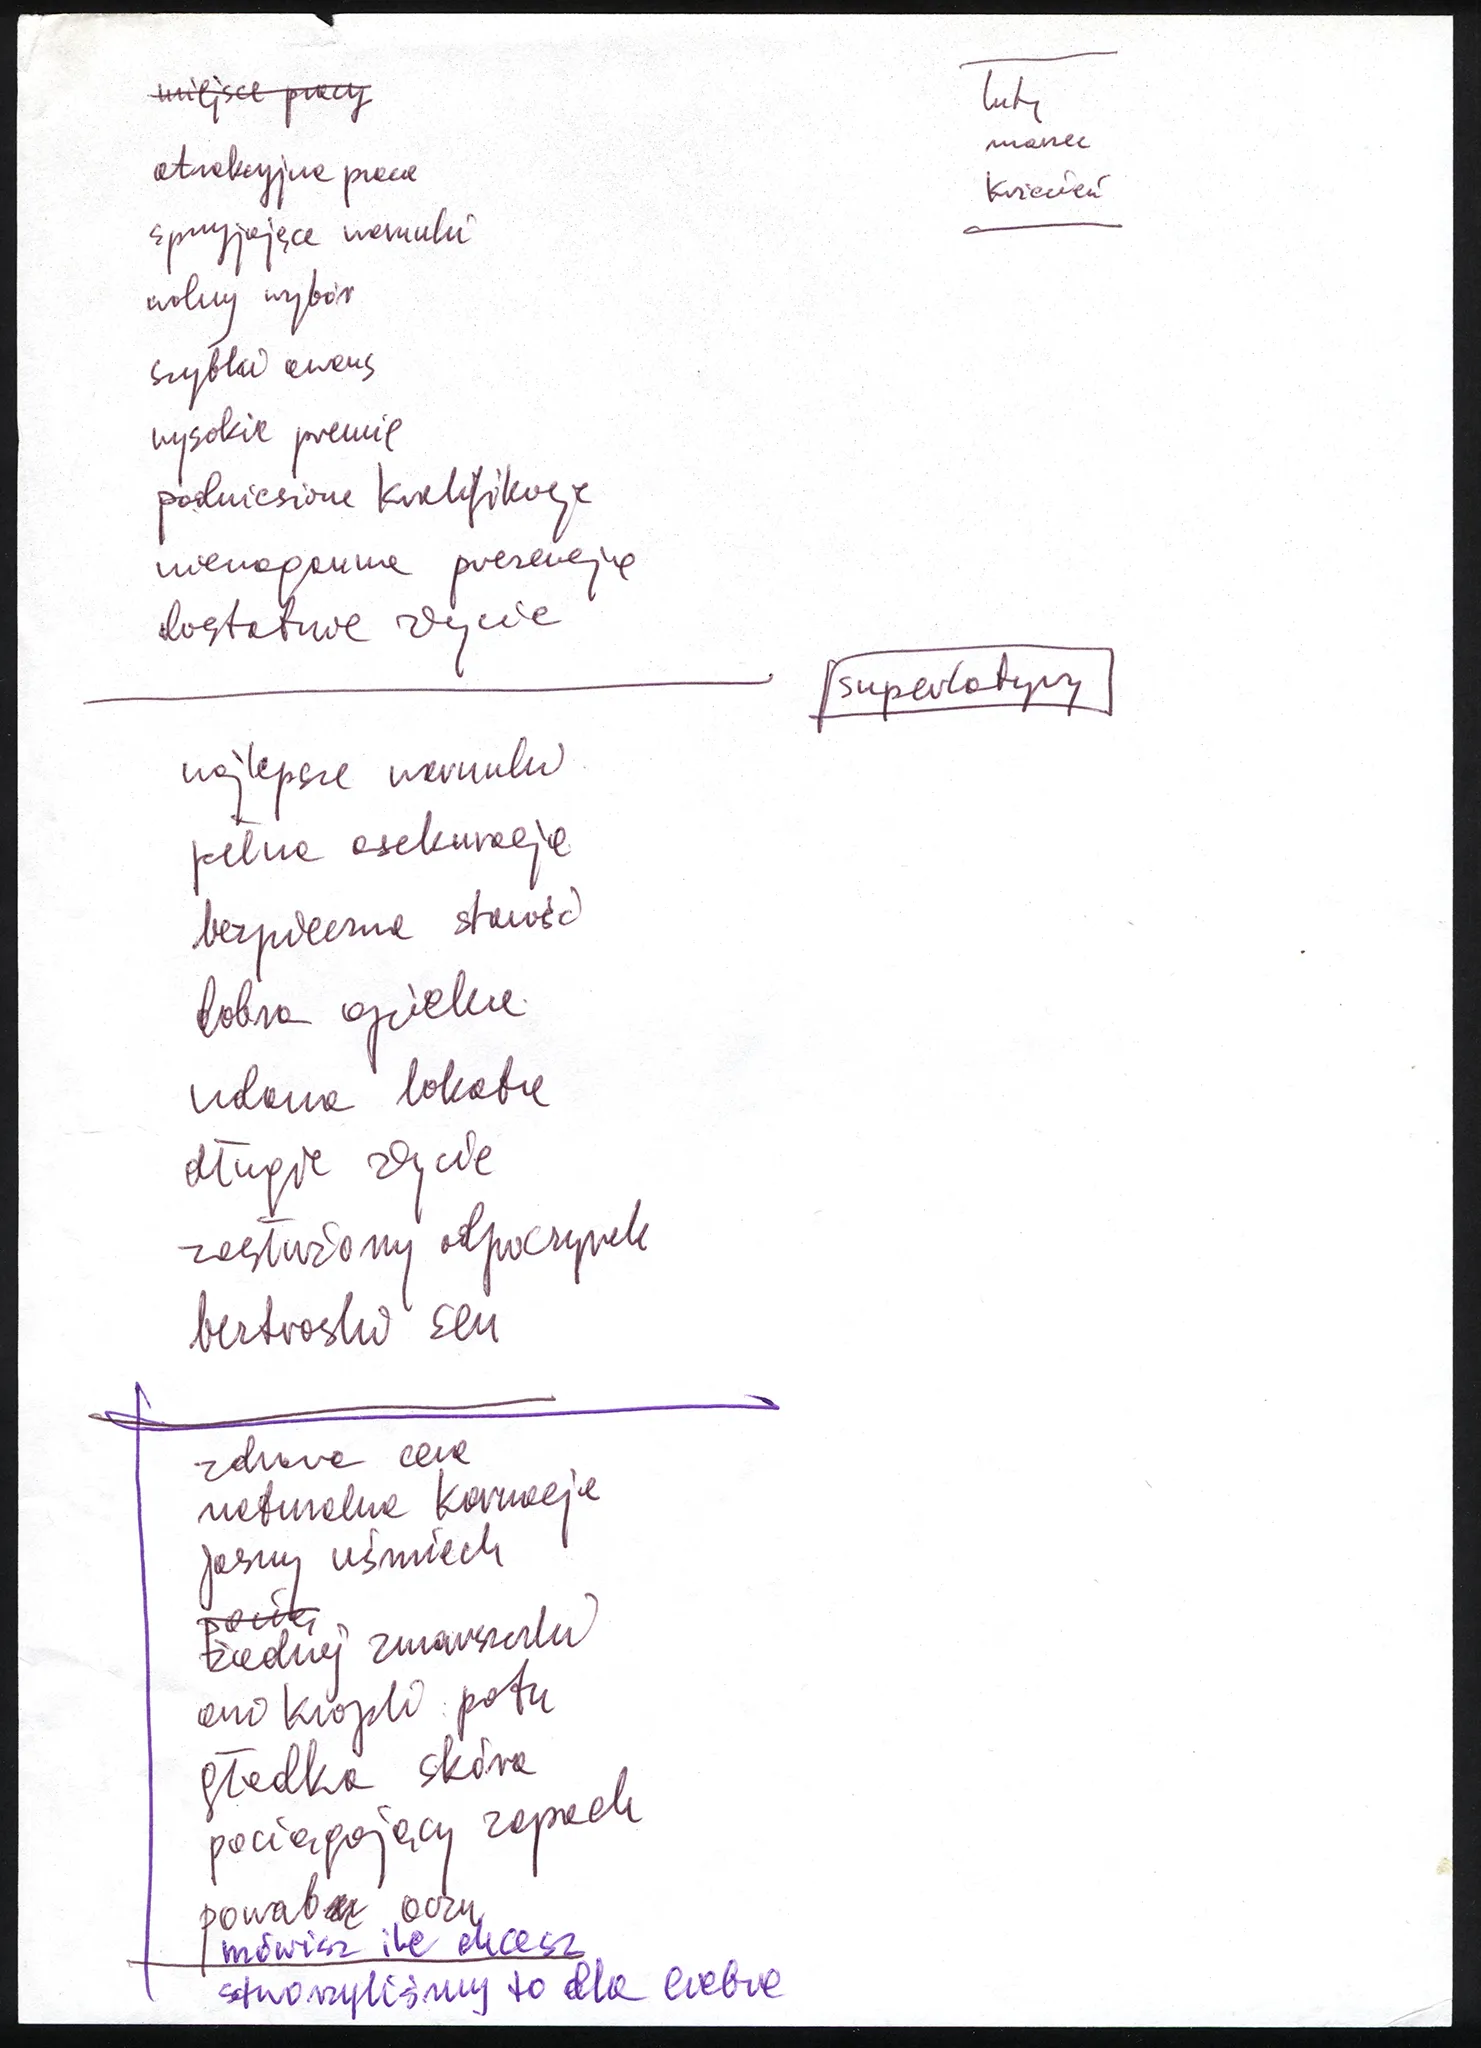 miejsce pracy
luty
marzec
kwiecień
atrakcyjna praca
sprzyjające warunki
wolny wybór
szybki awans
wysokie premie
podniesione kwalifikacje
nienaganna prezencja
dostatnie życie
superlatywy
najlepsze warunki
pełna asekuracja
bezpieczna starość
dobra opieka
udana lokata
długie życie
zasłużony odpoczynek
beztroski sen
zdrowa cera
naturalna karnacja
jasny uśmiech
żadnej zmarszczki
ani kropli potu
gładka skóra
pociągający zapach
powabne oczy
mówisz ile chcesz
stworzyliśmy to dla ciebie